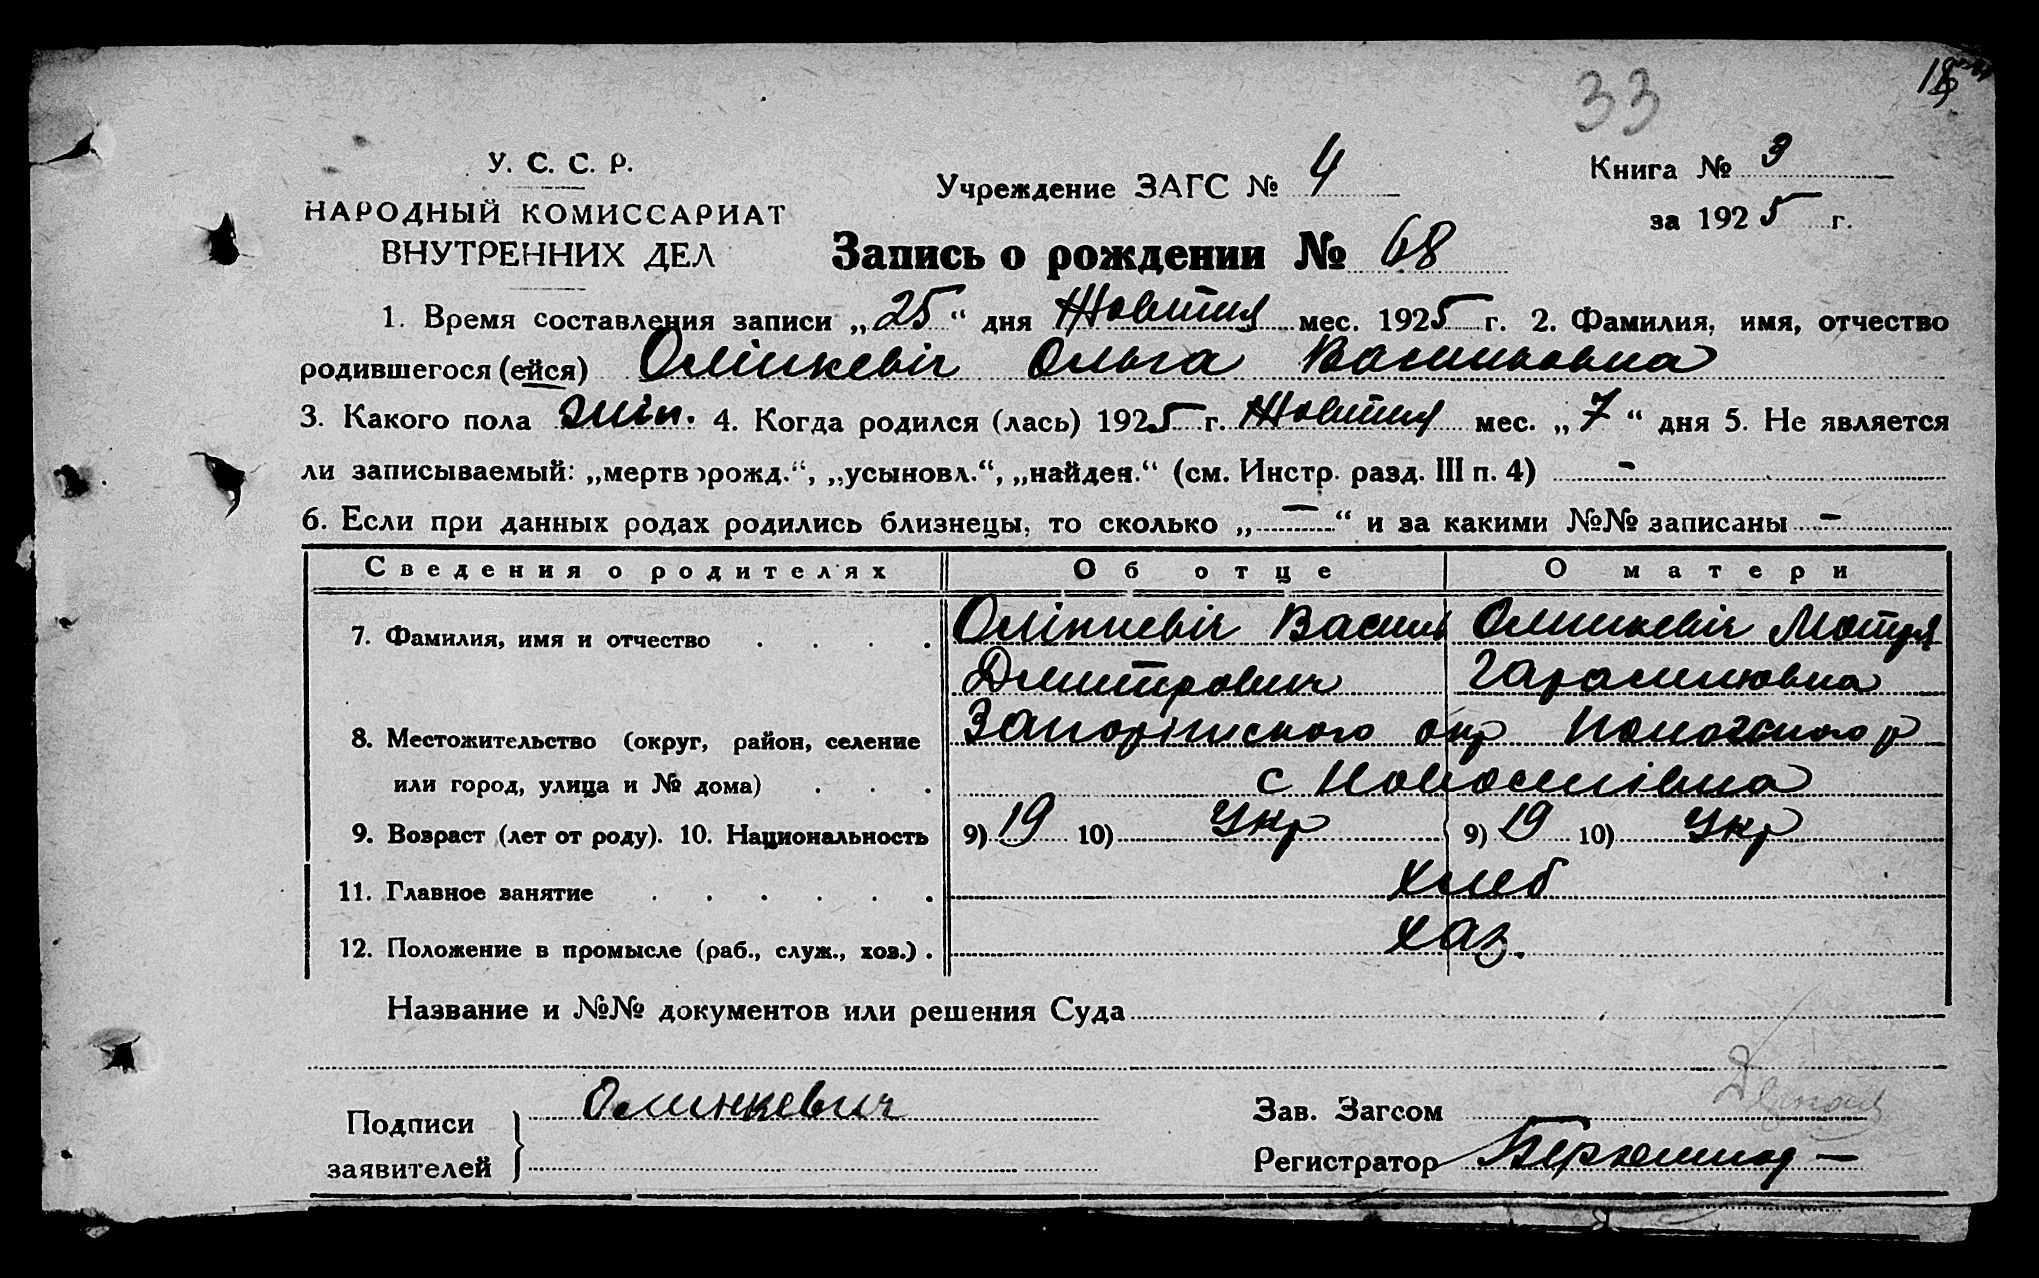 33
У. С. С. Р.
НАРОДНЫЙ КОМИССАРИАТ
ВНУТРЕННИХ ДЕЛ
Учреждение ЗАГС № 4
Книга № 3
за 1925 г.
Запись о рождении № 68
1. Время составления записи „25“ дня Жовтня мес. 1925 г. 2. Фамилия, имя, отчество
родившегося (ейся) Олінкевіч Ольга Васильовна
3. Какого пола жін. 4. Когда родился (лась) 1925 г. Жовтня мес. „7“ дня 5. Не является
ли записываемый: „мертворожд.“, „усыновл.“, „найден.“ (см. Инстр. разд. III п. 4) -
6. Если при данных родах родились близнецы, то сколько „—“ и за какими №№ записаны -
Сведения о родителях Об отце О матери
7. Фамилия, имя и отчество Олінкевіч Василь Олинкевіч Мотря
Дмитрович Гарасимовна
8. Местожительство (округ, район, селение Запоріжського окр Пологського р
или город, улица и № дома) с Новоселівка
9. Возраст (лет от роду). 10. Национальность 9) 19 10) Укр 9) 19 10) Укр
11. Главное занятие хлеб
12. Положение в промысле (раб., служ., хоз.) хаз.
Название и №№ документов или решения Суда
Подписи заявителей Олинкевич
Зав. Загсом
Регистратор